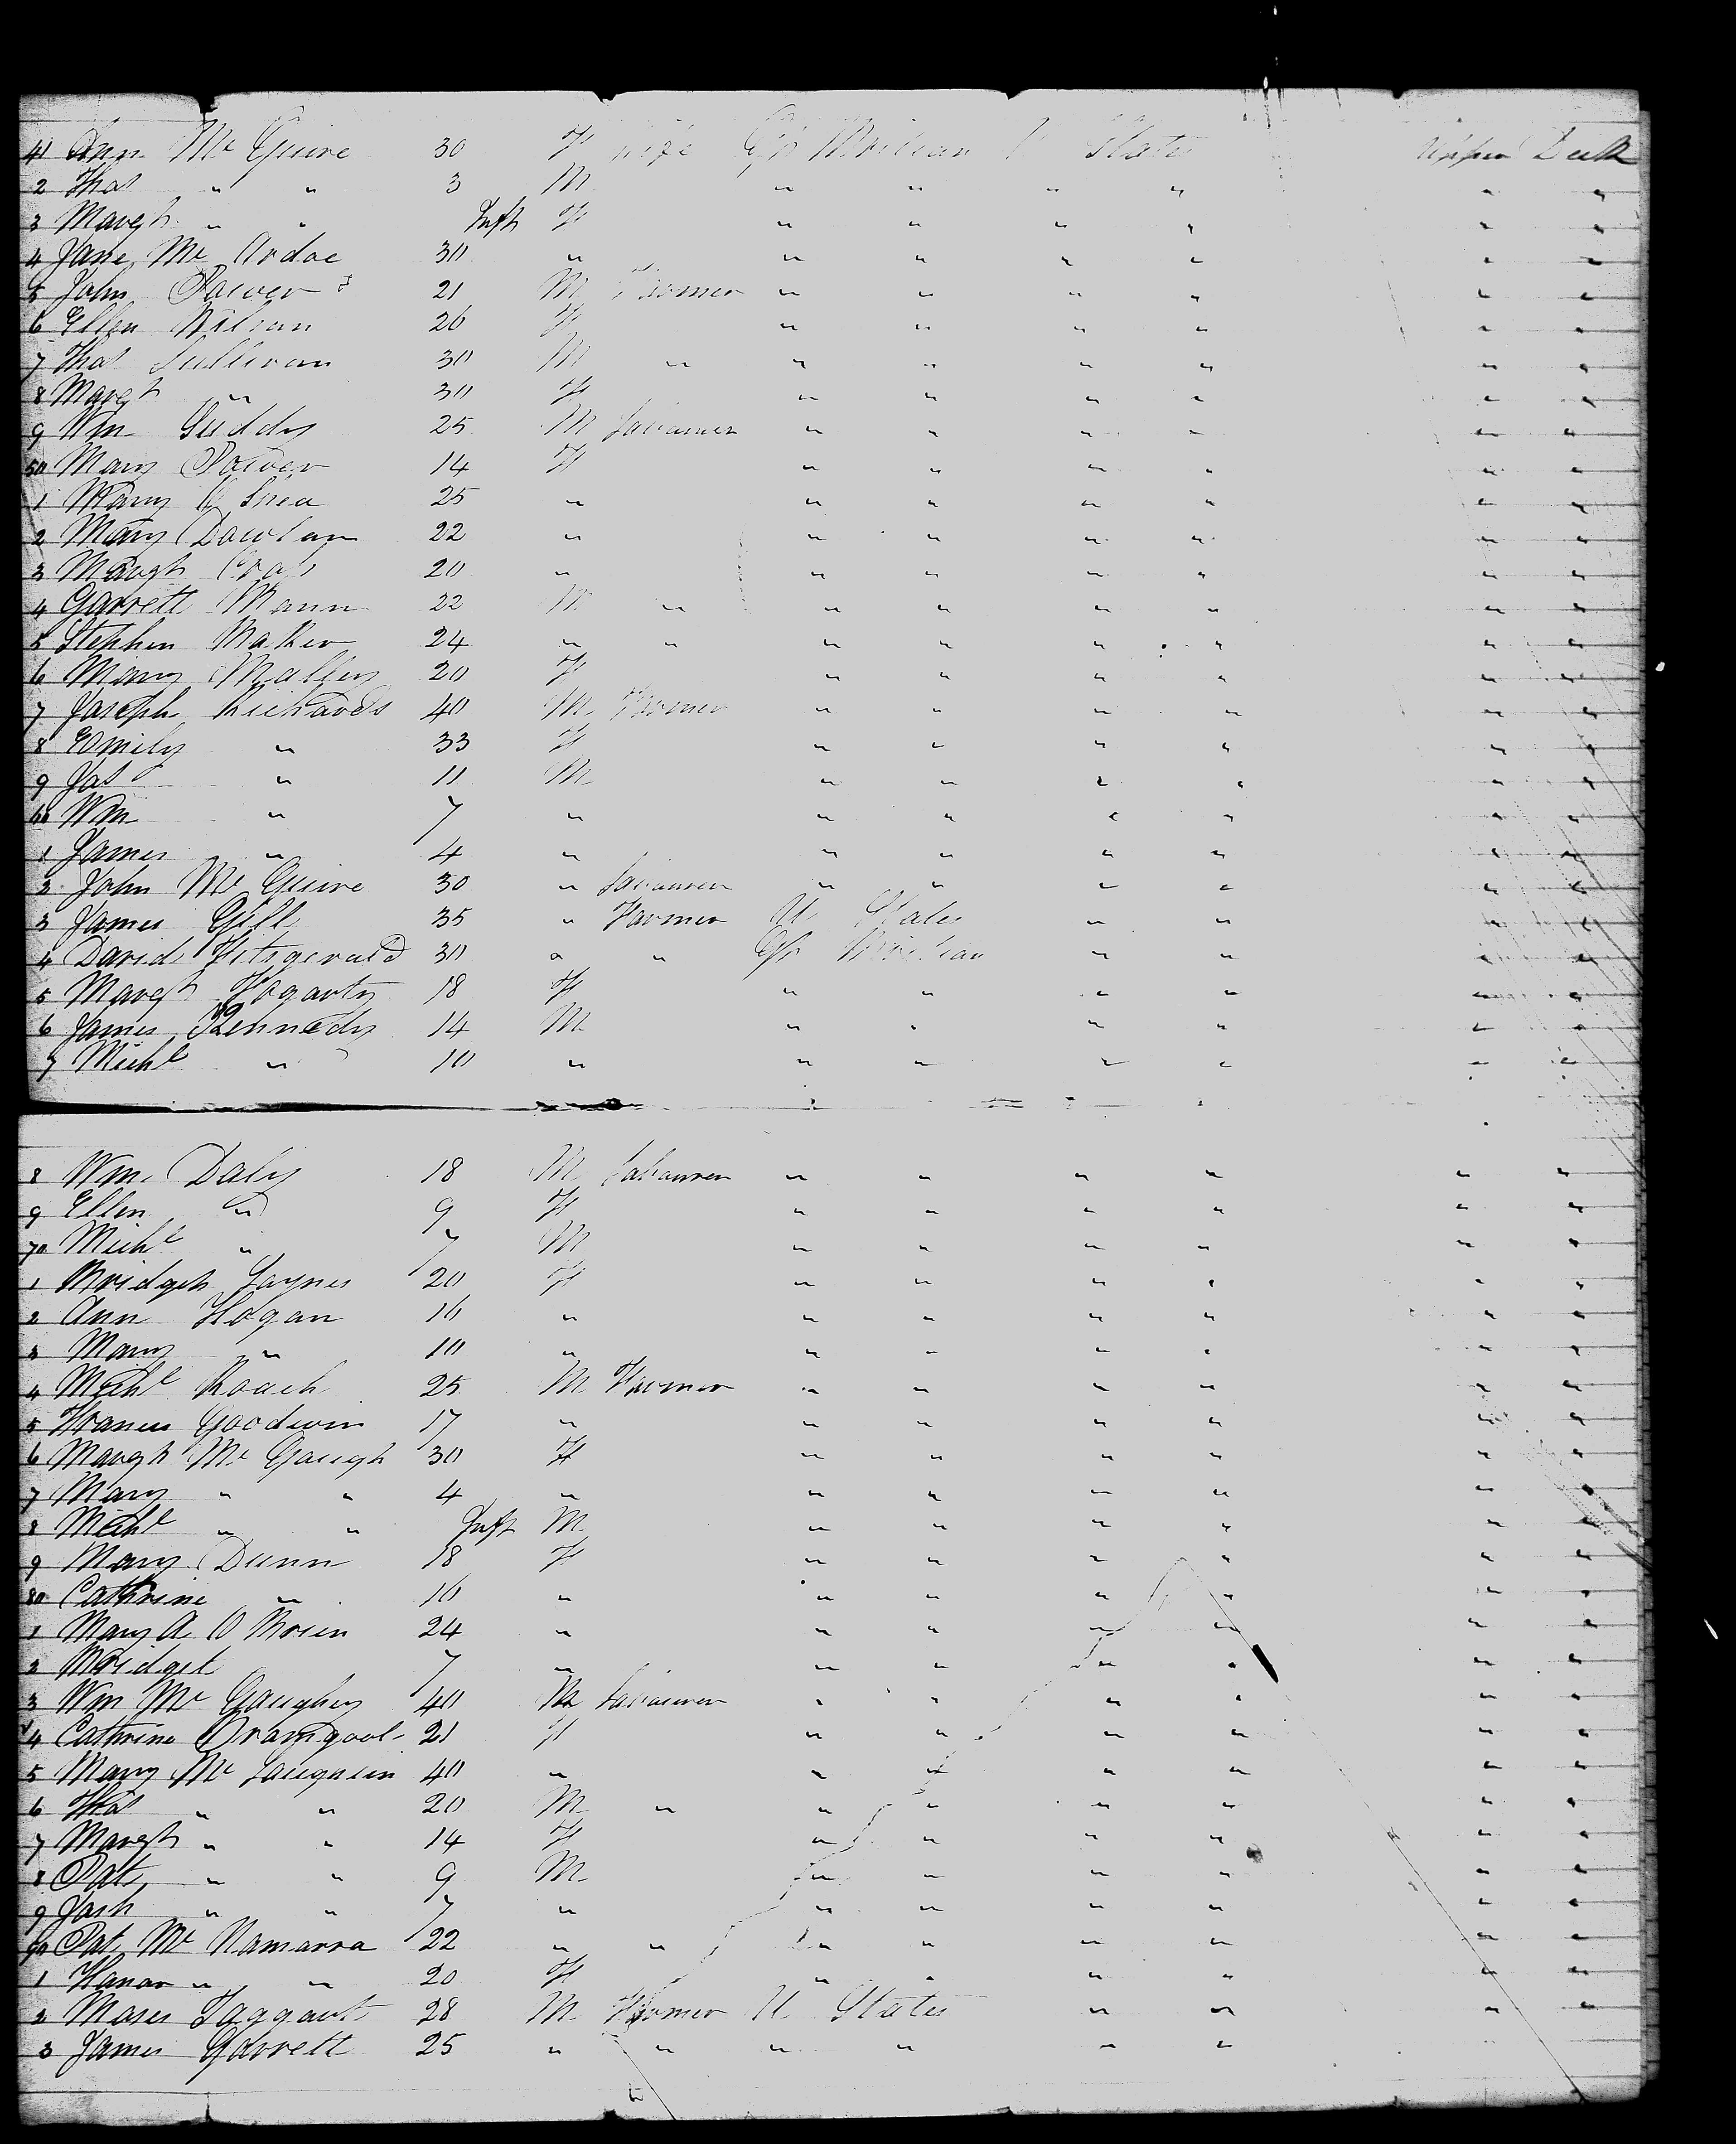 41 Ann Mc Guire 30 F wife Gt Britian U States Upper Deck
2 Thos " " 3 M " " " " " "
3 Margt " " Inft F " " " " " "
4 Jane Mc Ardoe 30 " " " " " " "
5 John Power 21 M Farmer " " " " " "
6 Ellen Wilson 26 F " " " " " "
7 Thos Sullivan 30 M " " " " " " "
8 Margt " 30 F " " " " " "
9 Wm Guddy 25 M Labourer " " " " " "
50 Mary Power 14 F " " " " " "
1 Mary O Shea 25 " " " " " " "
2 Mary Dowlan 22 " " " " " " "
3 Margt 20 " " " " " " "
4 Garrett Mann 22 M " " " " " " "
5 Stephen Maher 24 " " " " " " " "
6 Mary Malley 20 F " " " " " "
7 Joseph Richards 40 M Farmer " " " " " "
8 Emily " 33 F " " " " " "
9 Jos " 11 M " " " " " "
60 Wm " 7 " " " " " " "
1 James " 4 " " " " " " "
2 John Mc Guire 30 " Labourer " " " " " "
3 James Gill 35 " Farmer U States " " " "
4 David Fitsgerald 30 " " Gt Britian " " " "
5 Margt Fogarty 18 F " " " " " "
6 James Kennedy 14 M " " " " " "
7 Michl " 10 " " " " " " "
8 Wm Daly 18 M Labourer " " " " " "
9 Ellen " 9 F " " " " " "
70 Michl " 7 M " " " " " "
1 Bridget Laynes 20 F " " " " " "
2 Ann Hogan 16 " " " " " " "
3 Mary " 10 " " " " " " "
4 Michl Roach 25 M Farmer " " " " " "
5 Francis Goodwin 17 " " " " " " "
6 Margt Mc Gaugh 30 F " " " " " "
7 Mary " " 4 " " " " " " "
8 Michl " " Inft M " " " " " "
9 Mary Dunn 18 F " " " " " "
80 Cathrine " 16 " " " " " " "
1 Mary A O Brien 24 " " " " " " "
2 Bridget 7 " " " " " " "
3 Wm Mc Gaughey 40 M Labourer " " " " " "
4 Cathrine 21 F " " " " " "
5 Mary Mc Laughlin 40 " " " " " " "
6 Thos " " 20 M " " " " " " "
7 Margt " " 14 F " " " " " "
8 Pat " " 9 M " " " " " "
9 Josh " " 7 " " " " " " "
90 Pat Mc Namarra 22 " " " " " " " "
1 Hanar " " 20 F " " " " " "
2 Moses Taggart 28 M Farmer U States " " " "
3 James Garrett 25 " " " " " "